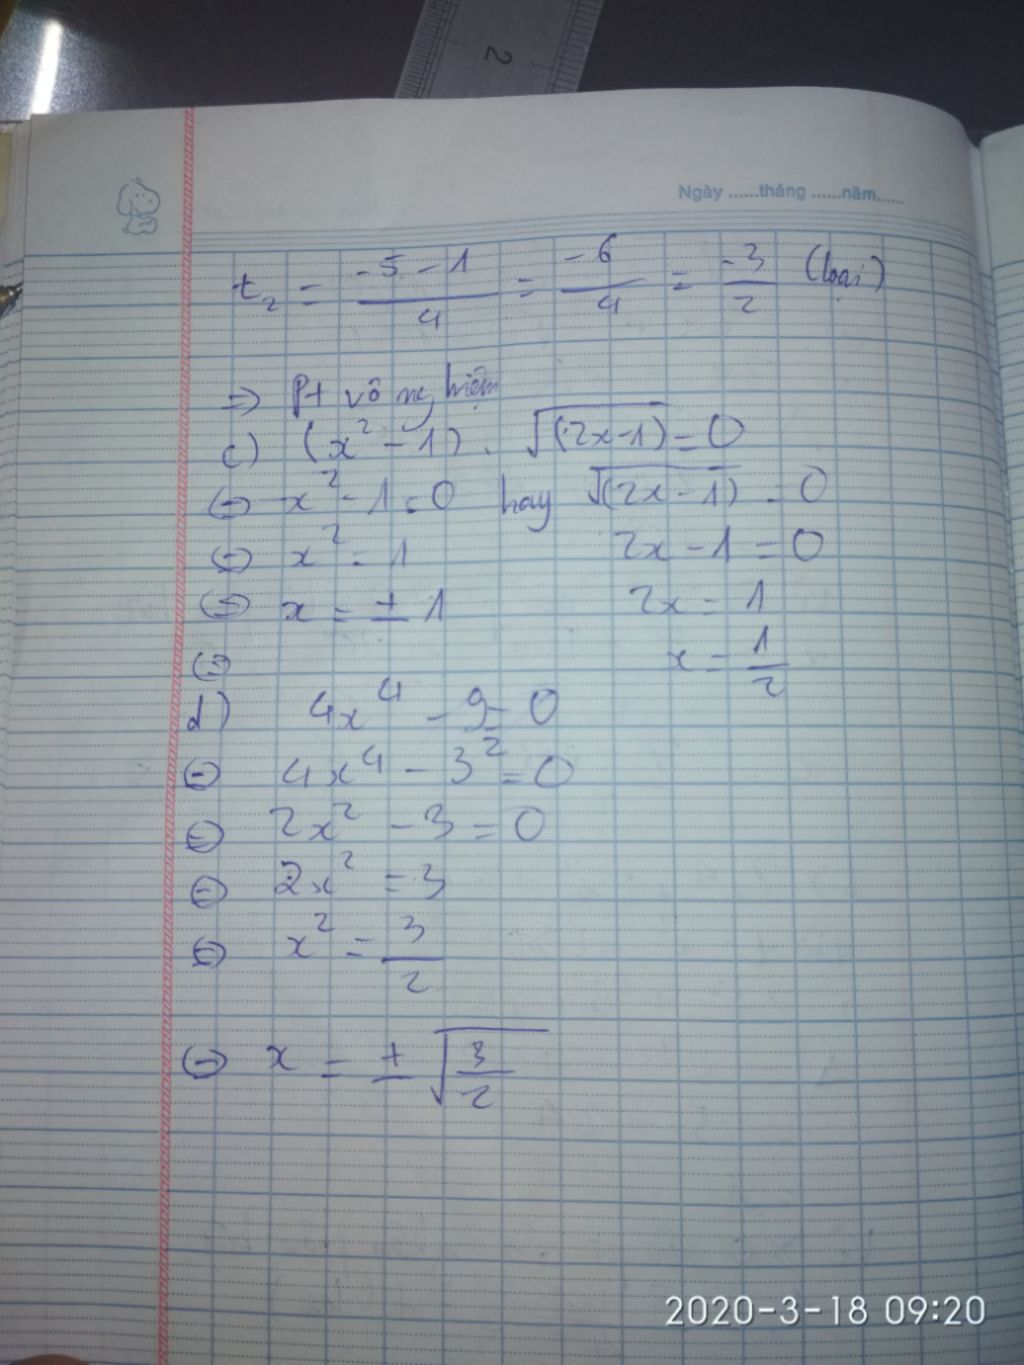 2
Ngày ......tháng ......năm......
t₂ = (-5 - 1)/4 = -6/4 = -3/2 (loại)
=> Pt vô nghiệm
c) (x² - 1) . √(2x-1) = 0
⇔ x² - 1 = 0 hay √(2x - 1) = 0
⇔ x² = 1 2x - 1 = 0
⇔ x = ± 1 2x = 1
⇔ x = 1/2
d) 4x⁴ - 9 = 0
⇔ 4x⁴ - 3² = 0
⇔ 2x² - 3 = 0
⇔ 2x² = 3
⇔ x² = 3/2
⇔ x = ± √(3/2)
2020-3-18 09:20